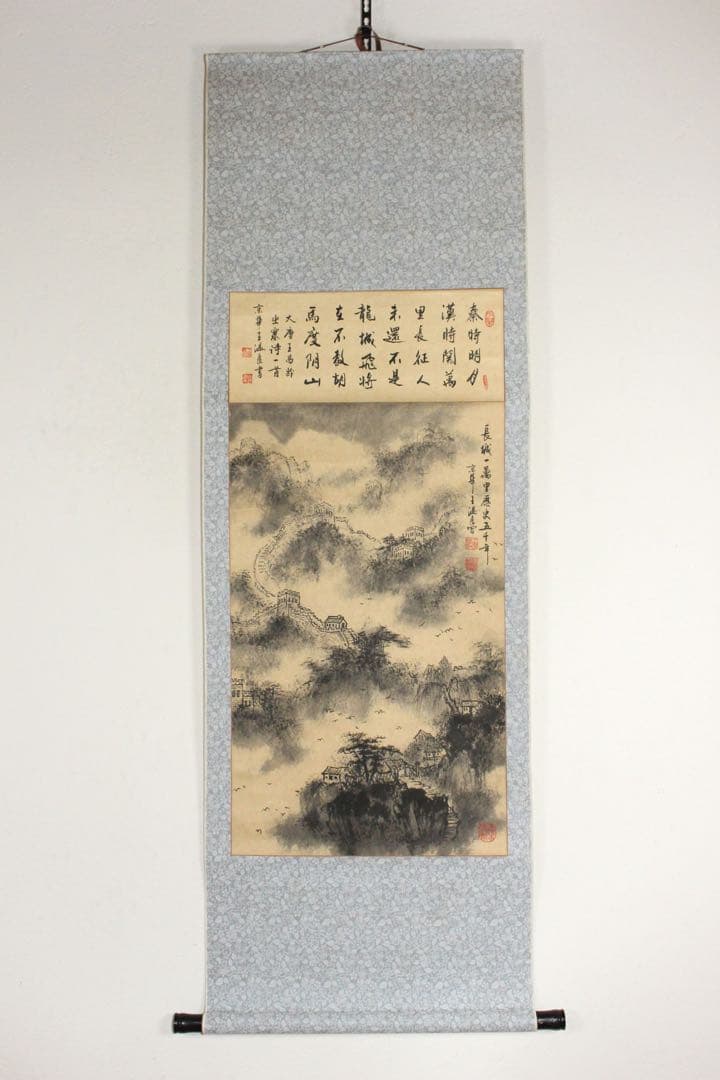 秦時明月
漢時関萬
里長征人
未還不是
龍城飛将
在不教胡
馬度阴山
大唐王昌龄
出塞诗一首
京華王海書
長城一萬里歷史五千年
京華王海寫